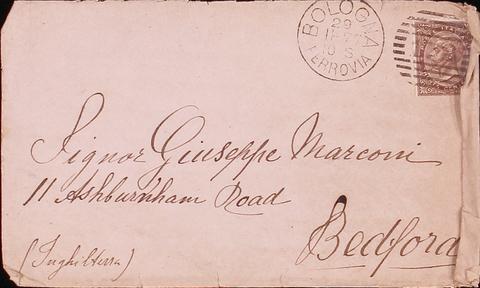 BOLOGNA
29
10 S
FERROVIA
Signor Giuseppe Marconi
11 Ashburnham Road
Bedford
(Inghilterra)